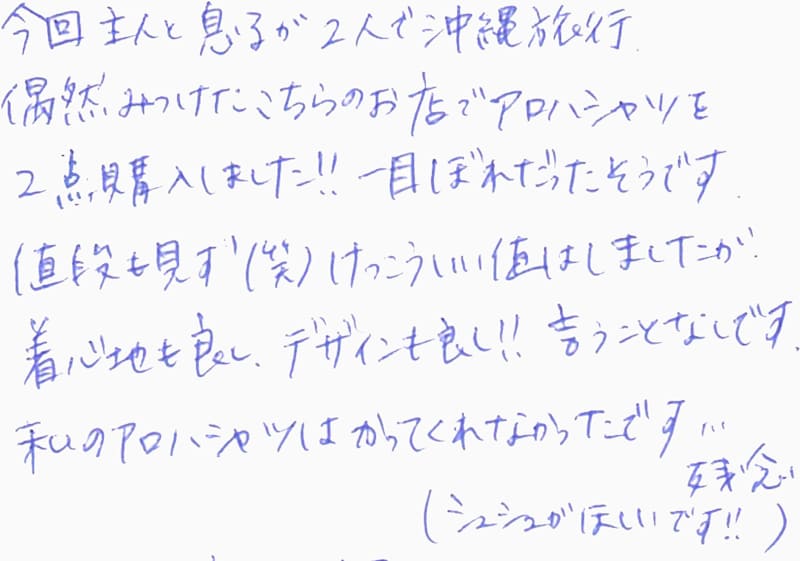 今回主人と息子が2人で沖縄旅行.
偶然みつけたこちらのお店でアロハシャツを
2点購入しました!! 一目ぼれだったそうです.
値段も見ず(笑)けっこういい値はしましたが.
着心地も良し、デザインも良し!! 言うことなしです.
私のアロハシャツはかってくれなかったです...
残念
(シュシュがほしいです!!)